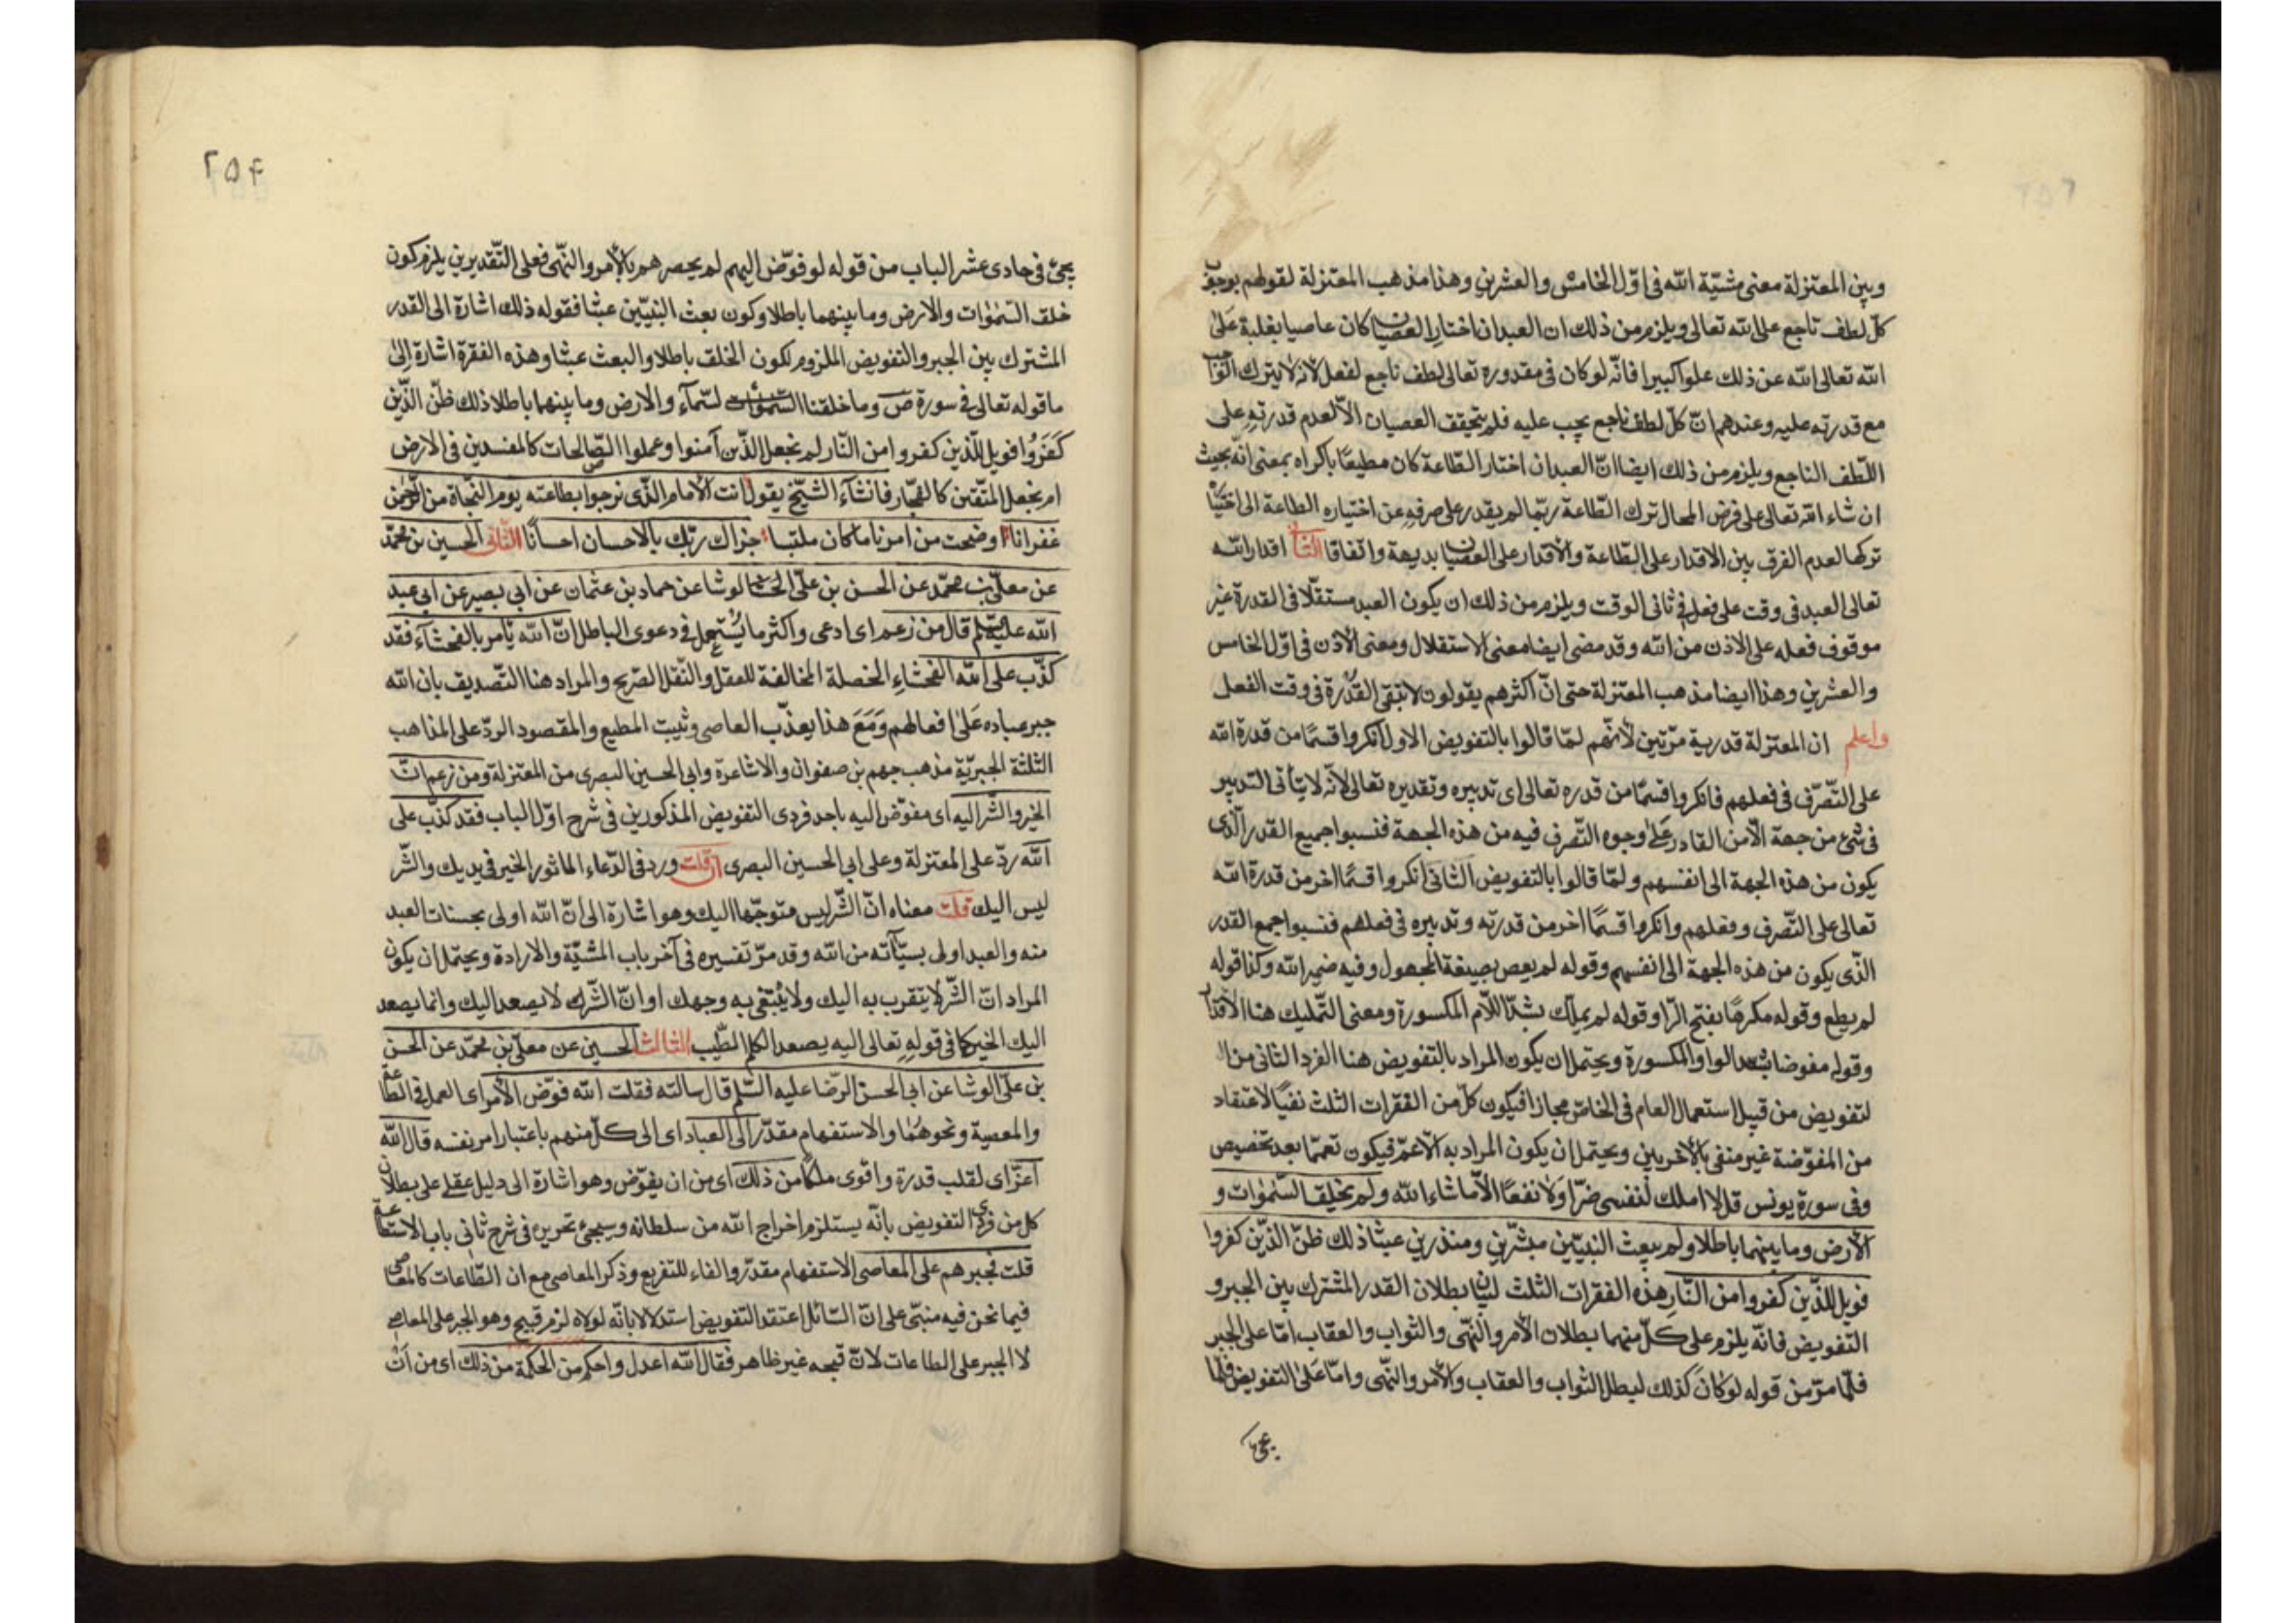 وبين المعتزلة معنى مشيّة الله في اوّل الخامس والعشرين وهذا مذهب المعتزلة لقولهم بوجوب
كلّ لطف ناجع على الله تعالى ويلزم من ذلك ان العبد ان اختار العصيان كان عاصيا بغلبة على
الله تعالى الله عن ذلك علوا كبيرا فانّه لو كان في مقدوره تعالى لطف ناجع لفعل لانه لا يترك الواجب
مع قدرته عليه وعندهم انّ كلّ لطف ناجع يجب عليه فلم يتحقق العصيان الّا لعدم قدرته على
اللّطف الناجع ويلزم من ذلك ايضا انّ العبد ان اختار الطّاعة كان مطيعًا باكراه بمعنى انّه بحيث
ان شاء الله تعالى على فرض المحال ترك الطّاعة ربّما لم يقدر على صرفه عن اختياره الطاعة الى اختيار
تركها لعدم الفرق بين الاقدار على الطّاعة والاقدار على العصيان بديهة واتفاقا الثاني اقدار الله
تعالى العبد في وقت على فعل في ثاني الوقت ويلزم من ذلك ان يكون العبد مستقلّا في القدرة غير
موقوف فعله على الاذن من الله وقد مضى ايضا معنى الاستقلال ومعنى الاذن في اوّل الخامس
والعشرين وهذا ايضا مذهب المعتزلة حتى انّ اكثرهم يقولون لا تبقى القدرة في وقت الفعل
واعلم ان المعتزلة قدرية مرّتين لانّهم لمّا قالوا بالتفويض الاول انكروا قسمًا من قدرة الله
على التّصرّف في فعلهم فانكروا قسمًا من قدره تعالى اى تدبيره وتقديره تعالى لانّه لا يتأتى التدبير
في شئ من جهة الّا من القادر على وجوه التّصرف فيه من هذه الجهة فنسبوا جميع القدر الّذى
يكون من هذه الجهة الى انفسهم ولمّا قالوا بالتفويض الثانى انكروا قسمًا اخر من قدرة الله
تعالى على التّصرف وفعلهم وانكروا قسمًا اخر من قدرته وتدبيره في فعلهم فنسبوا جميع القدر
الّذى يكون من هذه الجهة الى انفسهم وقوله لم يعص بصيغة المجهول وفيه ضمير الله وكذا قوله
لم يطع وقوله مكرهًا بفتح الرّا وقوله لم يملّك بشدّ اللّام المكسورة ومعنى التّمليك هنا الاقدار
وقوله مفوضا بشد الواو المكسورة ويحتمل ان يكون المراد بالتفويض هنا الفرد الثانى من ال
لتفويض من قبيل استعمال العام في الخاصّ مجازا فيكون كلّ من الفقرات الثلث نفيًا لاعتقاد
من المفوّضة غير منفى بالاخريين ويحتمل ان يكون المراد به الاعمّ فيكون تعميما بعد تخصيص
وفى سورة يونس قل لا املك لنفسى ضرّا ولا نفعًا الّا ما شاء الله ولم يخلق السّموات و
الارض وما بينهما باطلا ولم يبعث النبيّين مبشّرين ومنذرين عبثا ذلك ظنّ الذّين كفروا
فويل للذّين كفروا من النّار هذه الفقرات الثلث لبيان بطلان القدر المشترك بين الجبر و
التفويض فانّه يلزم على كلّ منهما بطلان الأمر والنّهى والثواب والعقاب امّا على الجبر
فلمّا مرّ من قوله لو كان كذلك لبطل الثواب والعقاب والأمر والنّهى وامّا على التفويض فلما
يجئ
٢٥۴
يجئ في حادى عشر الباب من قوله لو فوّض اليهم لم يحصرهم بالأمر والنّهى فعلى التّقديرين يلزم كون
خلق السّموات والارض وما بينهما باطلا وكون بعث النبيّين عبثا فقوله ذلك اشارة الى القدر
المشترك بين الجبر والتفويض الملزوم لكون الخلق باطلا والبعث عبثا وهذه الفقرة اشارة الى
ما قوله تعالى في سورة ص وما خلقنا السّمآء والارض وما بينهما باطلا ذلك ظنّ الذّين
كفروا فويل للّذين كفروا من النّار لم نجعل الذّين آمنوا وعملوا الصّالحات كالمفسدين في الارض
ام نجعل المتّقين كالفجّار فانشآء الشيّخ يقول انت الامام الذّى نرجوا بطاعته يوم النّجاة من الرّحمن
غفرانا اوضحت من امرنا ما كان ملتبسا جزاك ربّك بالاحسان احسانًا الثّانى الحسين بن محمّد
عن معلّى بن محمّد عن الحسن بن علىّ الوشا عن حماد بن عثمان عن ابي بصير عن ابي عبد
الله عليه السّلم قال من زعم اى ادعى واكثر ما يستعمل في دعوى الباطل انّ الله يأمر بالفحشآء فقد
كذّب على الله الفحشاء الخصلة المخالفة للعقل والنّقل الصّريح والمراد هنا التّصديق بان الله
جبر عباده على افعالهم ومع هذا يعذّب العاصى ويثيب المطيع والمقصود الردّ على المذاهب
الثلثة الجبريّة مذهب جهم بن صفوان والاشاعرة وابى الحسين البصرى من المعتزلة ومن زعم انّ
الخير والشّر اليه اى مفوّض اليه باحد فردى التفويض المذكورين في شرح اوّل الباب فقد كذّب على
الله ردّ على المعتزلة وعلى ابي الحسين البصرى ان قلت ورد في الدّعاء الماثور الخير في يديك والشّر
ليس اليك قلت معناه انّ الشّر ليس متوجّها اليك وهو اشارة الى انّ الله اولى بحسنات العبد
منه والعبد اولى بسيّآته من الله وقد مرّ تفسيره في آخر باب المشيّة والارادة ويحتمل ان يكون
المراد انّ الشّر لا يتقرب به اليك ولا يبتغى به وجهك او انّ الشّر لا يصعد اليك وانما يصعد
اليك الخير كما في قوله تعالى اليه يصعد الكلم الطّيب الثالث الحسين عن معلّى بن محمّد عن الحسن
بن علىّ الوشا عن ابي الحسن الرّضا عليه السّلم قال سالته فقلت الله فوّض الأمر اى العمل في الطّاعة
والمعصية ونحوهما والاستفهام مقدّر الى العباد اى الى كلّ منهم باعتبار امر نفسه قال الله
اعزّ اى لقلب قدرة واقوى ملكا من ذلك اى من ان يفوّض وهو اشارة الى دليل عقلى على بطلان
كل من فردى التفويض بانّه يستلزم اخراج الله من سلطانه وسيجئ تحريره في شرح ثانى باب الاستطاعة
قلت فجبرهم على المعاصى الاستفهام مقدّر والفاء للتفريع وذكر المعاصى مع ان الطّاعات كالمعاصى
فيما نحن فيه مبنىّ على انّ السّائل اعتقد التفويض استدلالا بانّه لولاه لزم قبيح وهو الجبر على المعاصى
لا الجبر على الطاعات لانّ قبحه غير ظاهر فقال الله اعدل واحكم من الحكمة من ذلك اى من ان